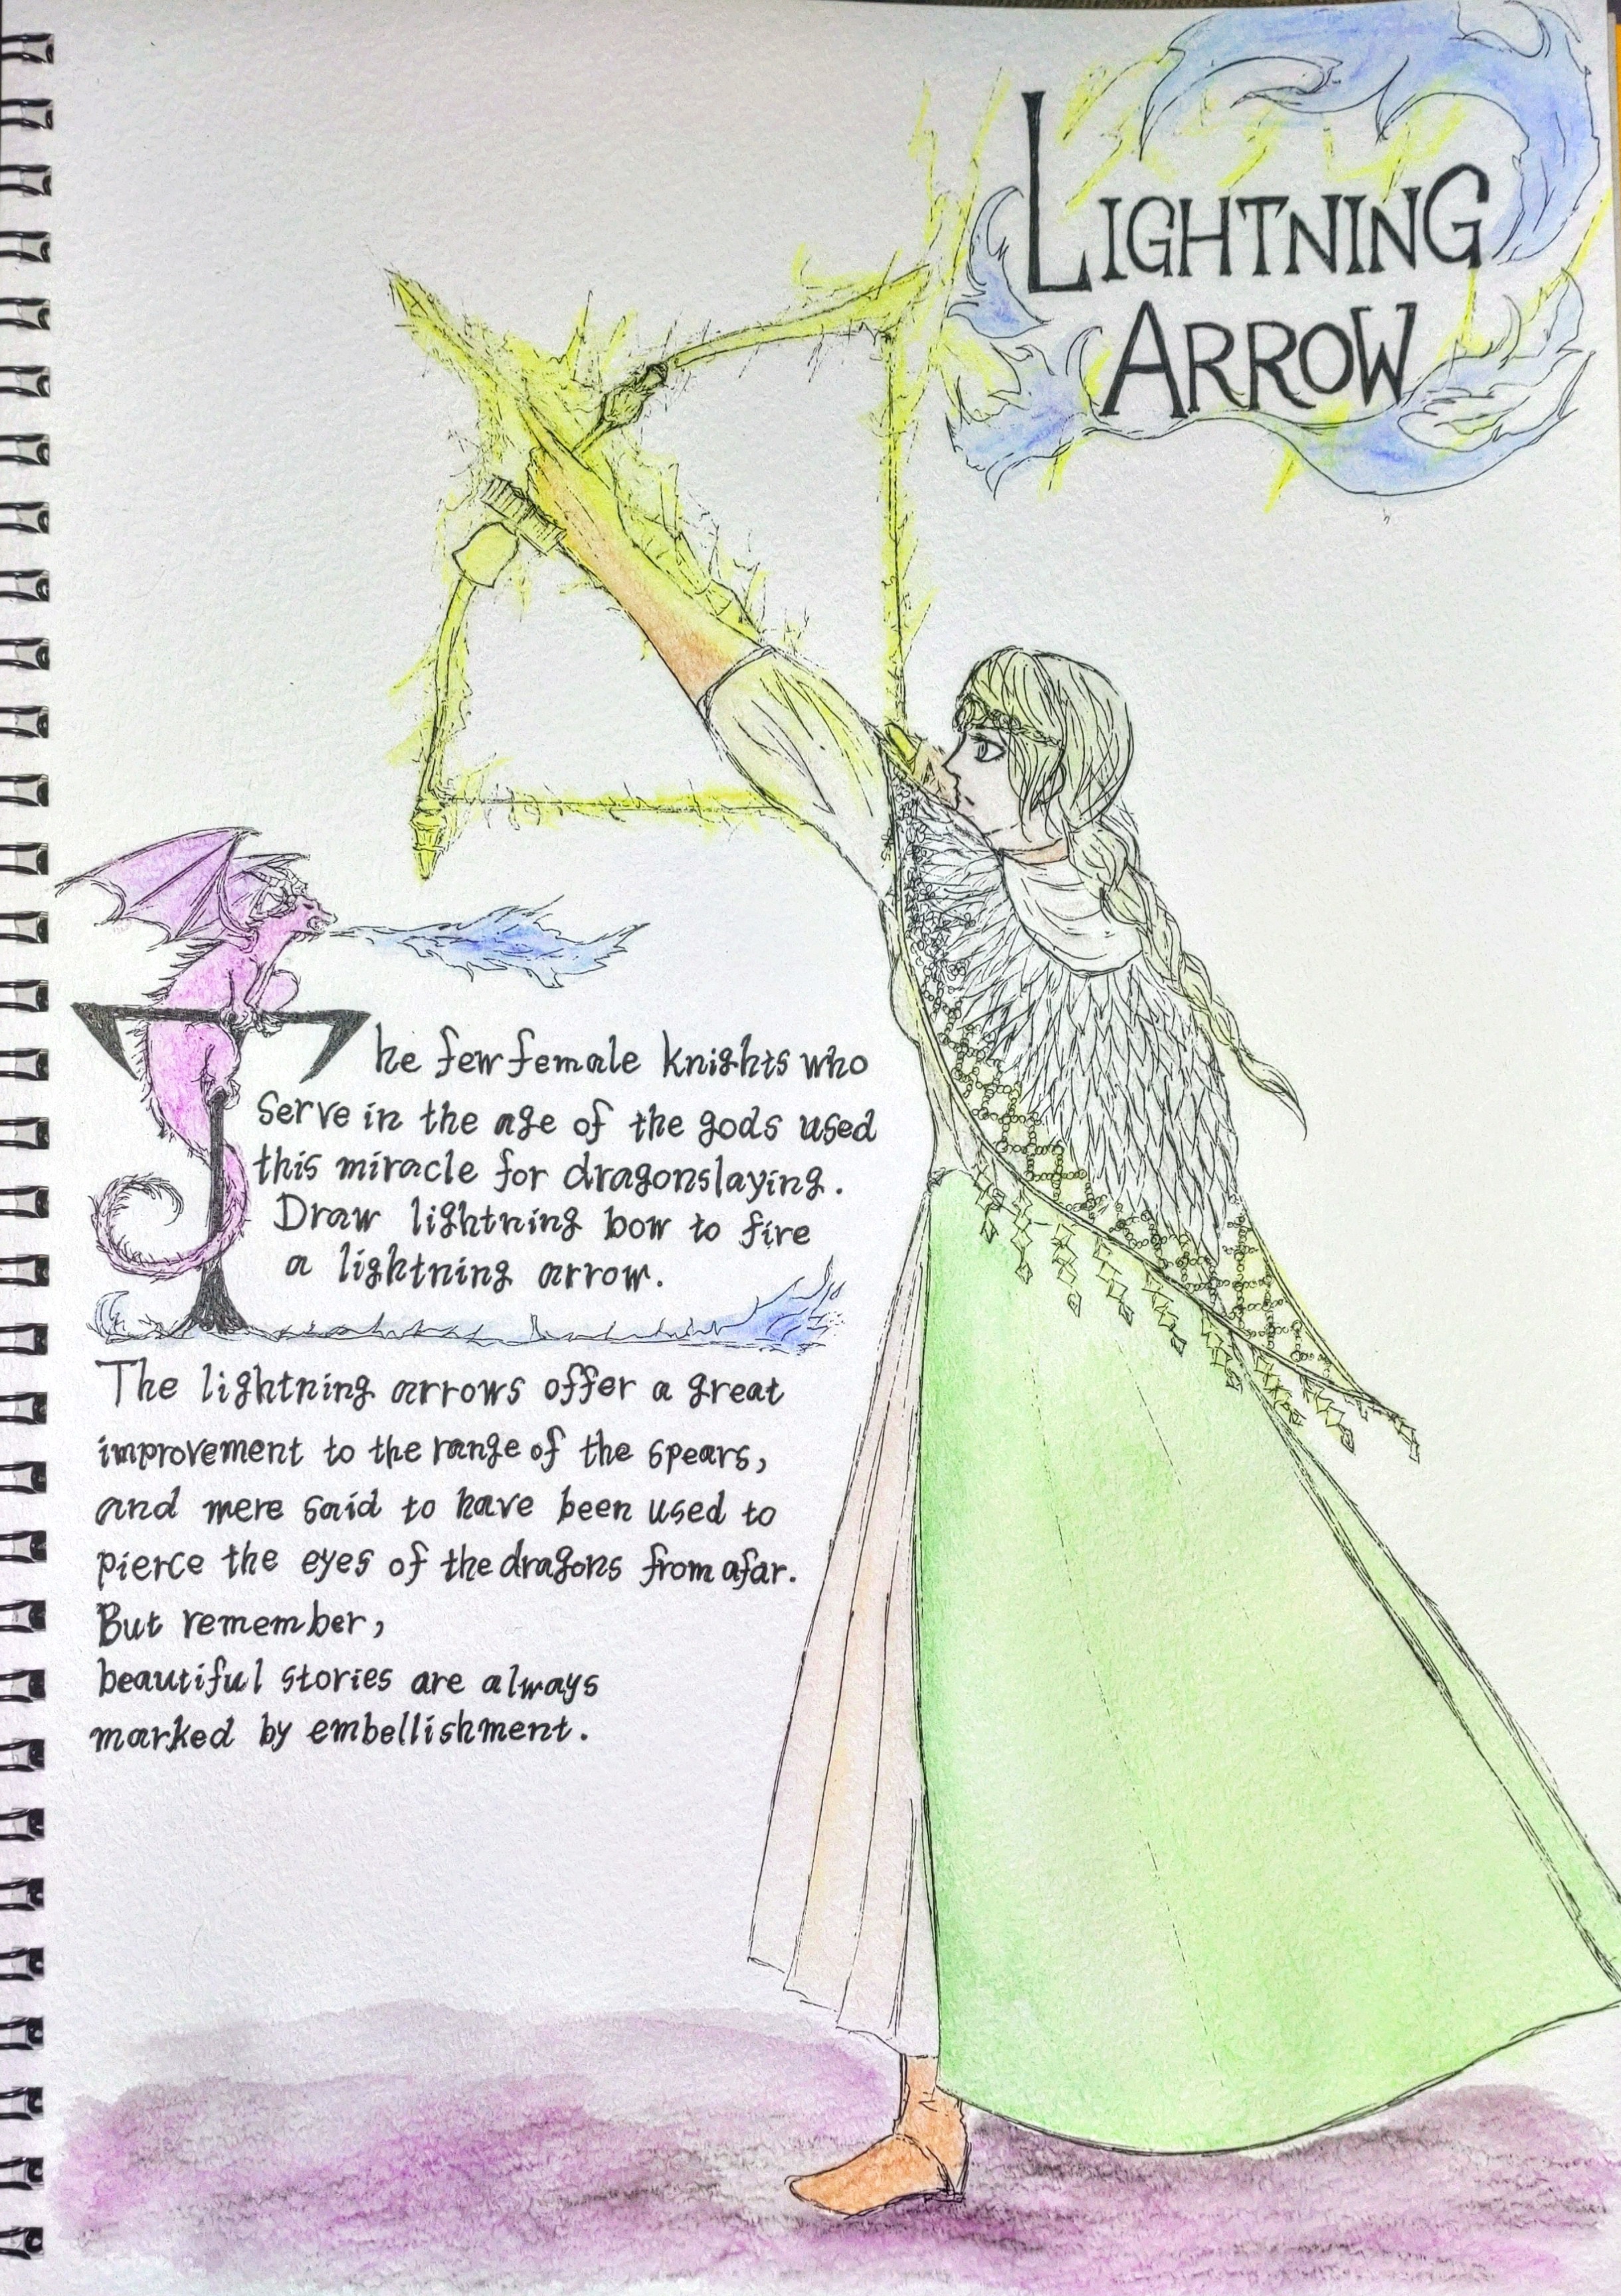 LIGHTNING
ARROW
The few female knights who
serve in the age of the gods used
this miracle for dragonslaying.
Draw lightning bow to fire
a lightning arrow.
The lightning arrows offer a great
improvement to the range of the spears,
and were said to have been used to
pierce the eyes of the dragons from afar.
But remember,
beautiful stories are always
marked by embellishment.